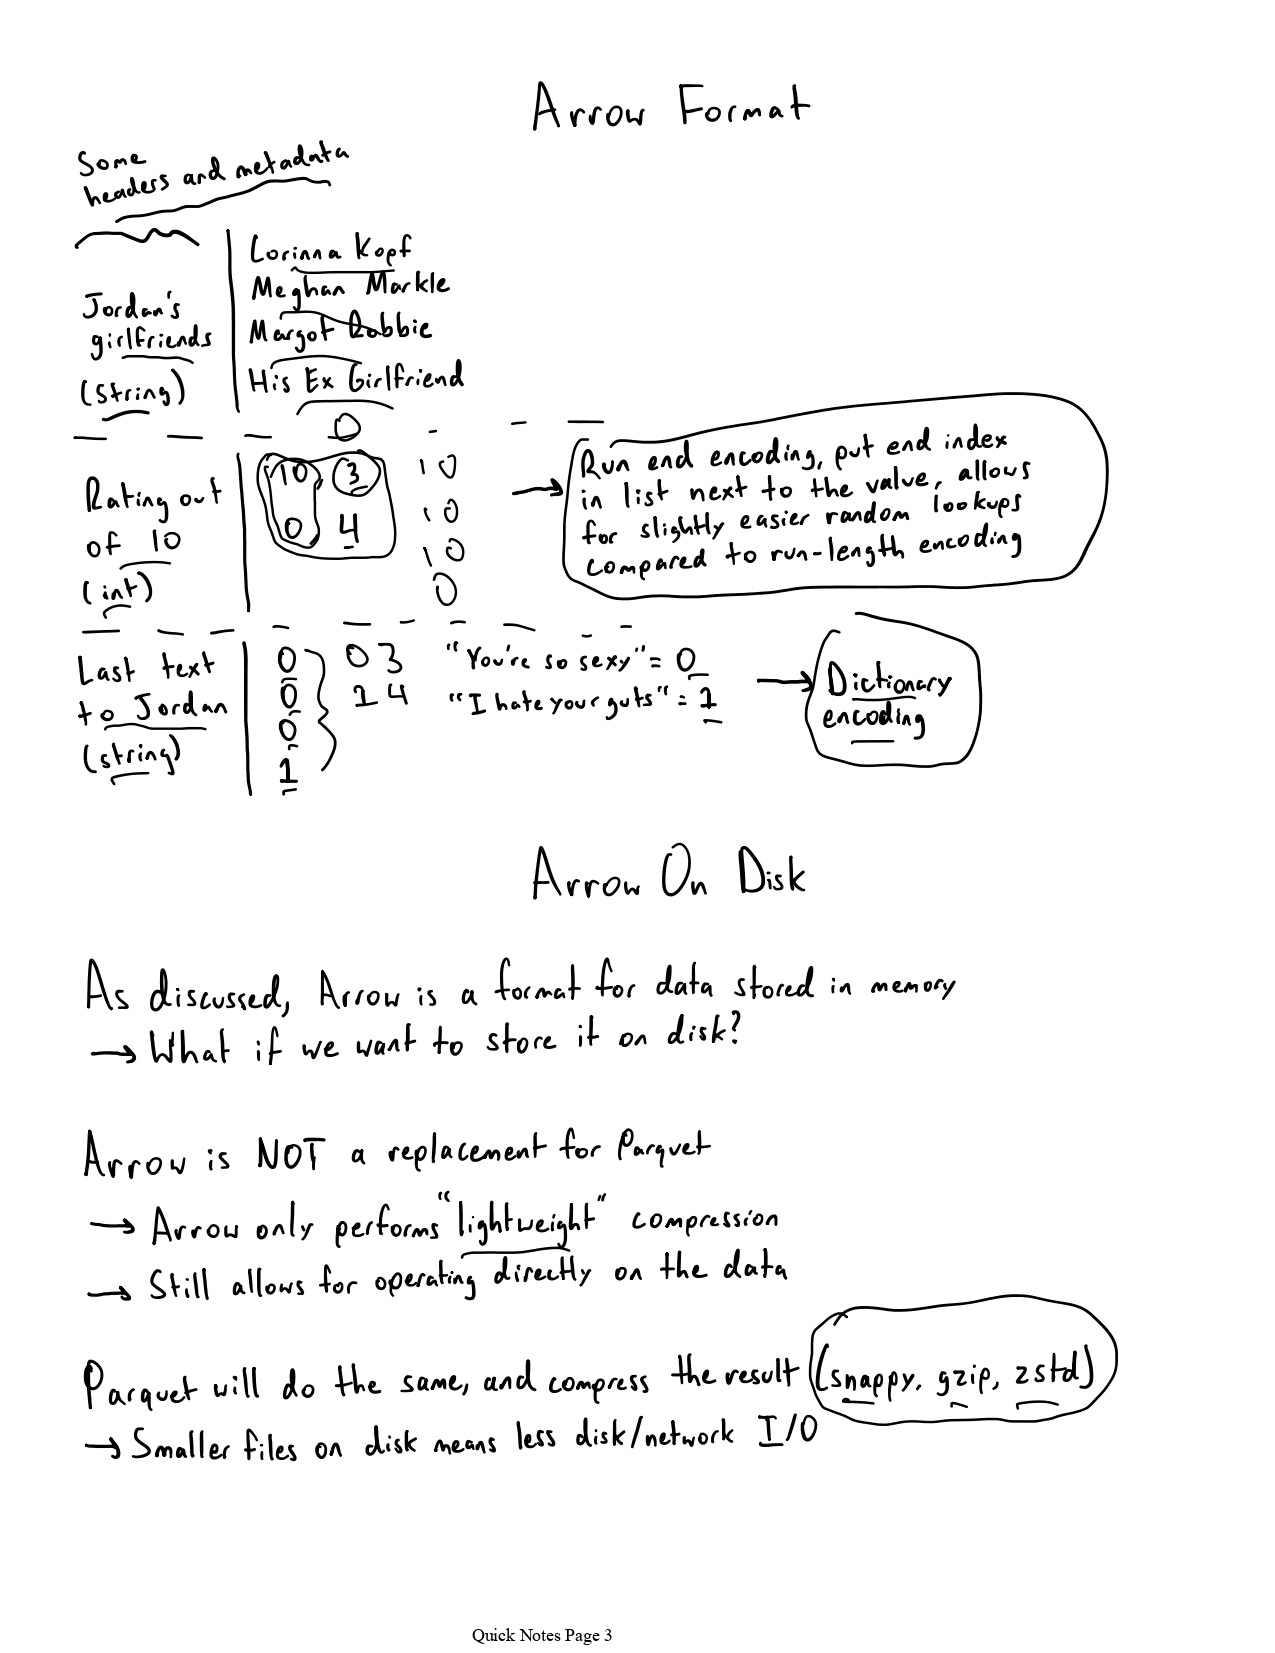 Arrow Format
Some
headers and metadata
Jordan's
girlfriends
(string)
Lorinna Kopf
Meghan Markle
Margot Robbie
His Ex Girlfriend
0
Rating out
of 10
(int)
10 3
0 4
10
10
10
0
Run end encoding, put end index
in list next to the value, allows
for slightly easier random lookups
compared to run-length encoding
Last text
to Jordan
(string)
0
0
0
1
0 3
1 4
"You're so sexy" = 0
"I hate your guts" = 1
Dictionary
encoding
Arrow On Disk
As discussed, Arrow is a format for data stored in memory
→ What if we want to store it on disk?
Arrow is NOT a replacement for Parquet
→ Arrow only performs "lightweight" compression
→ Still allows for operating directly on the data
Parquet will do the same, and compress the result (snappy, gzip, zstd)
→ Smaller files on disk means less disk/network I/O
Quick Notes Page 3